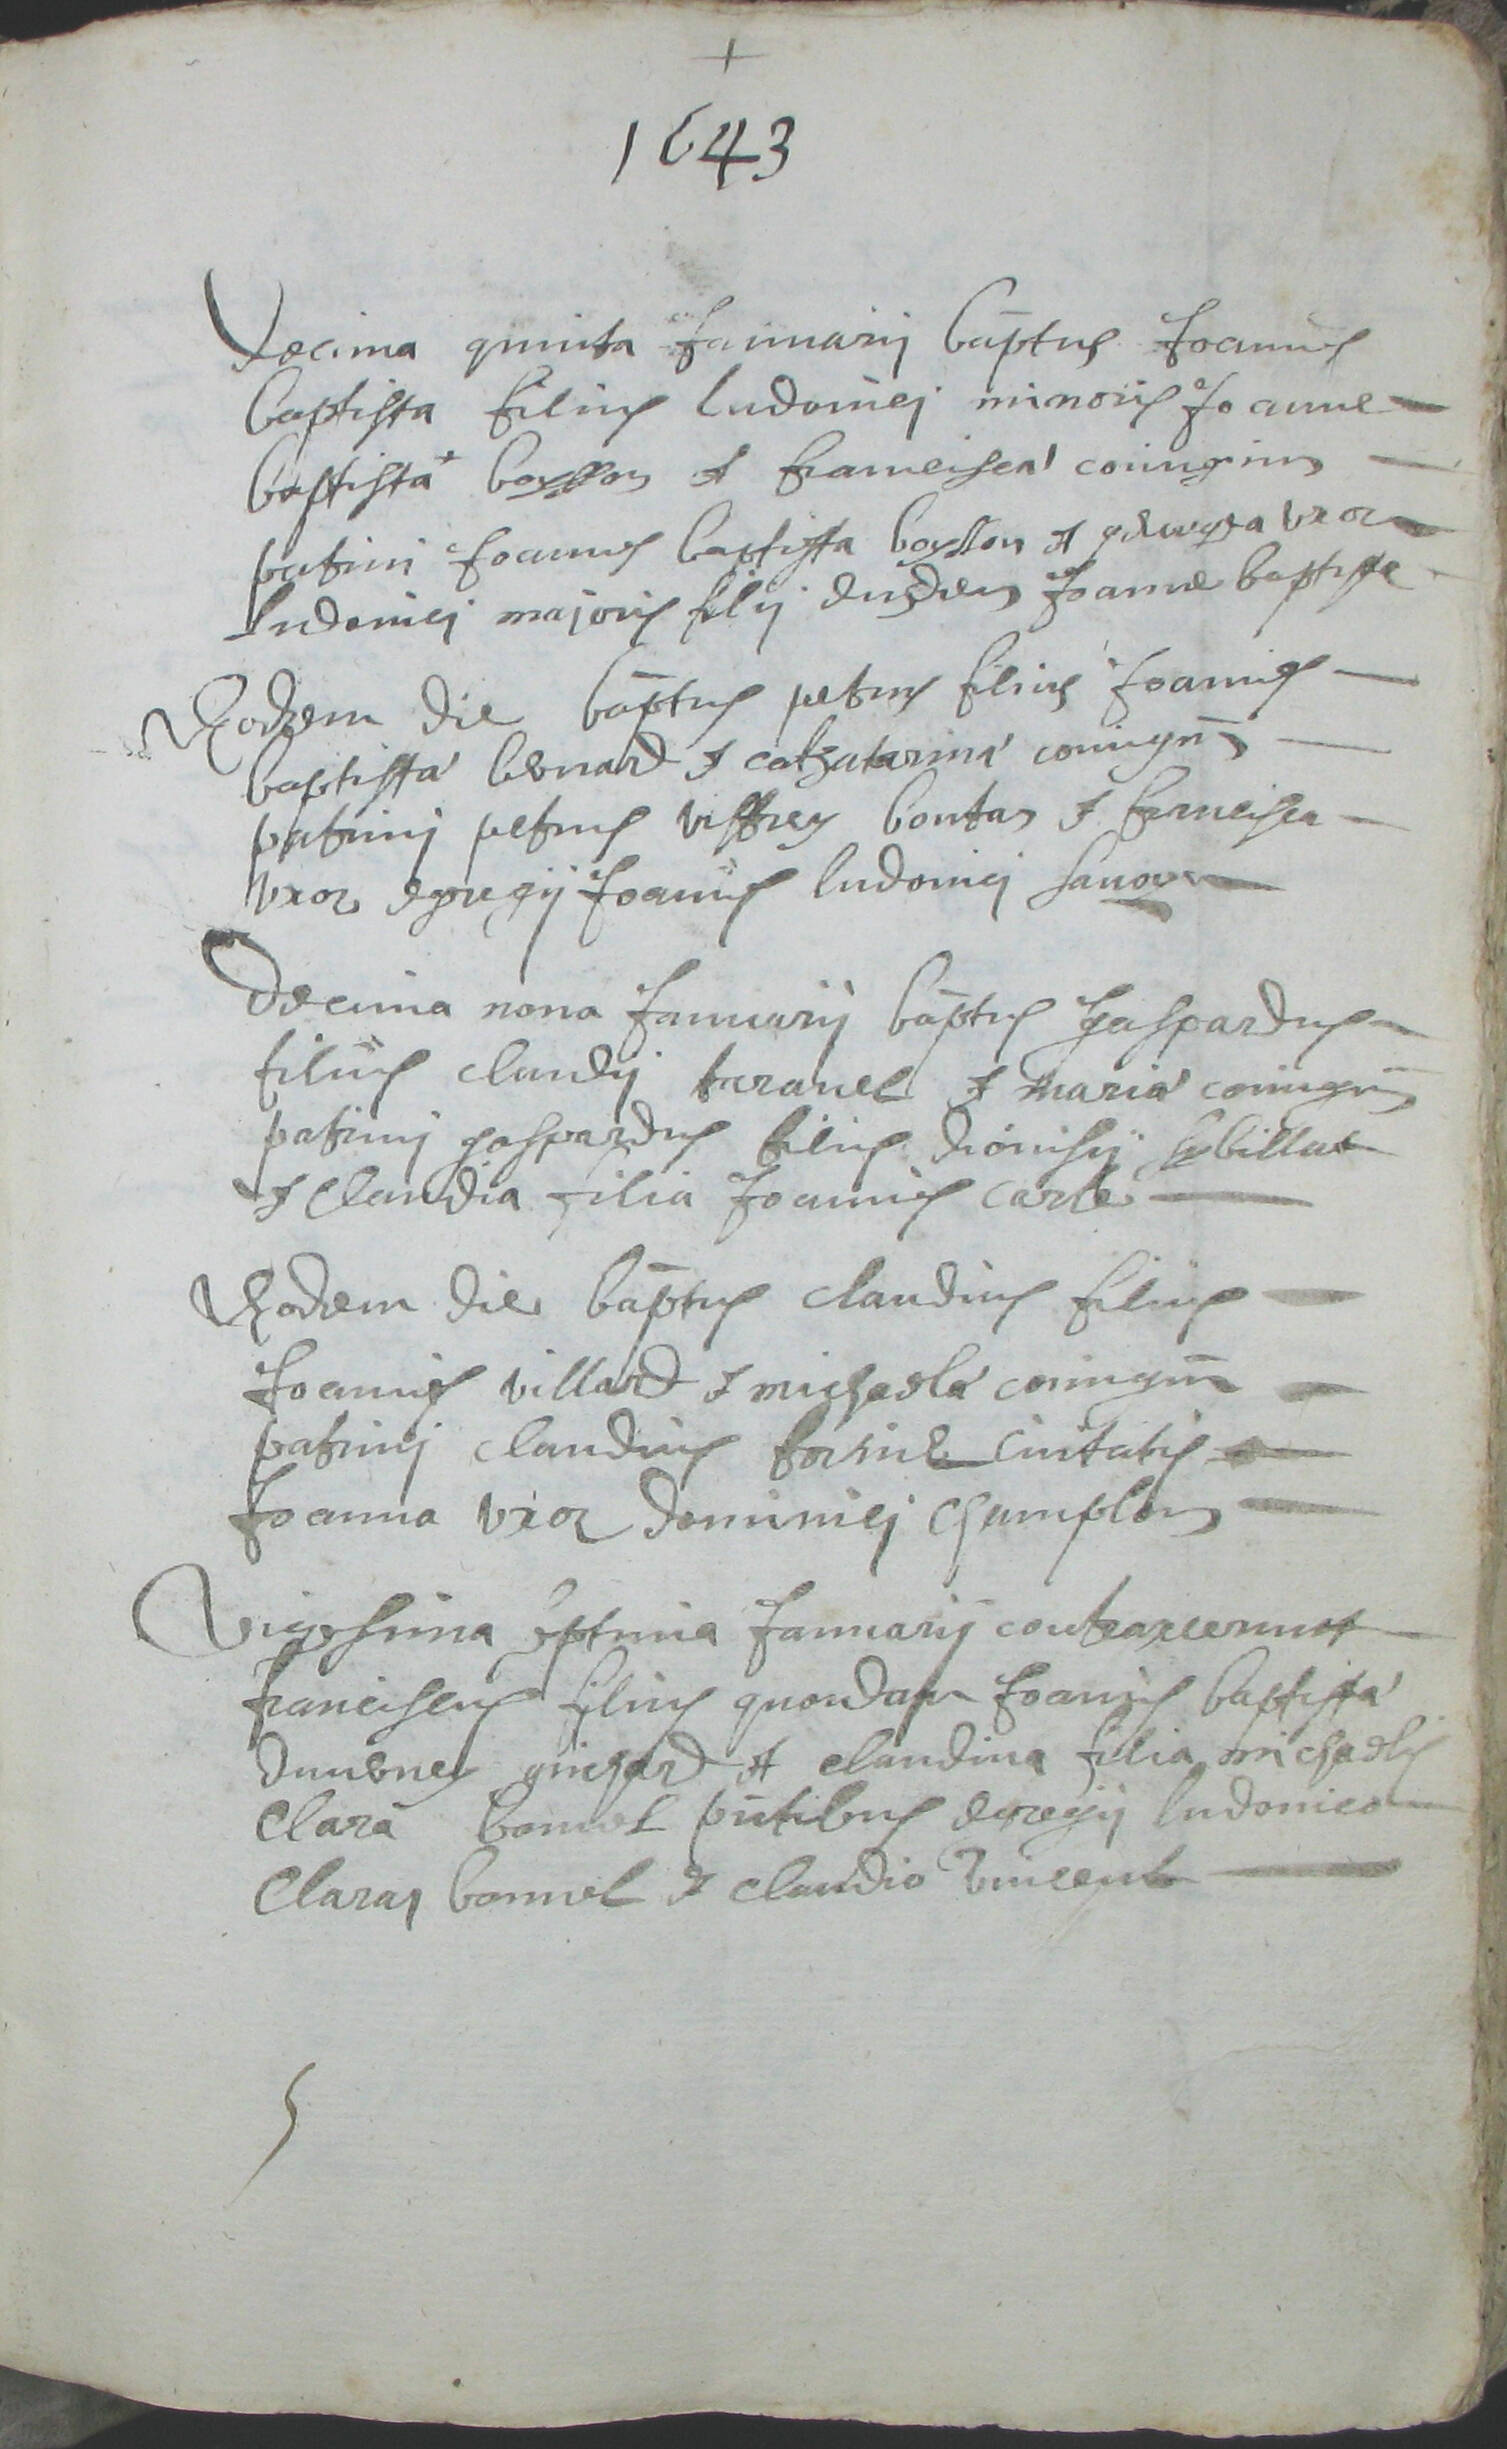 +
1643
Decima quinta Januarij bap̄tus Joannes
baptista filius ludovici minoris Joanne
baptista boysson & francisca coniugum
patrini Joannes baptista boysson & uxor
ludovici majoris filij eiusdem Joanne baptiste
Eodem die bap̄tus petrus filius Joannis
baptista bernard & catharina coniugū
patrinj petrus viffrey bontas & francisca
uxor egregij Joannis ludovici
Decima nona Januarij bap̄tus gaspardus
filius claudij & maria coniugū
patrinj gaspardus filius dionisij sybillat
& Claudia filia Joannis carle
Eodem die bap̄tus claudius filius
Joannis villard & michaela coniugū
patrinj claudius civitatis
Joanna uxor dominici
Vigesima septima Januarij contraxerunt
franciscus filius quondam Joannis baptista
guichard & claudina filia michaelis
Clara bonnel pn̄tibus egregij ludovico
Claraz bonnel & claudio vincent